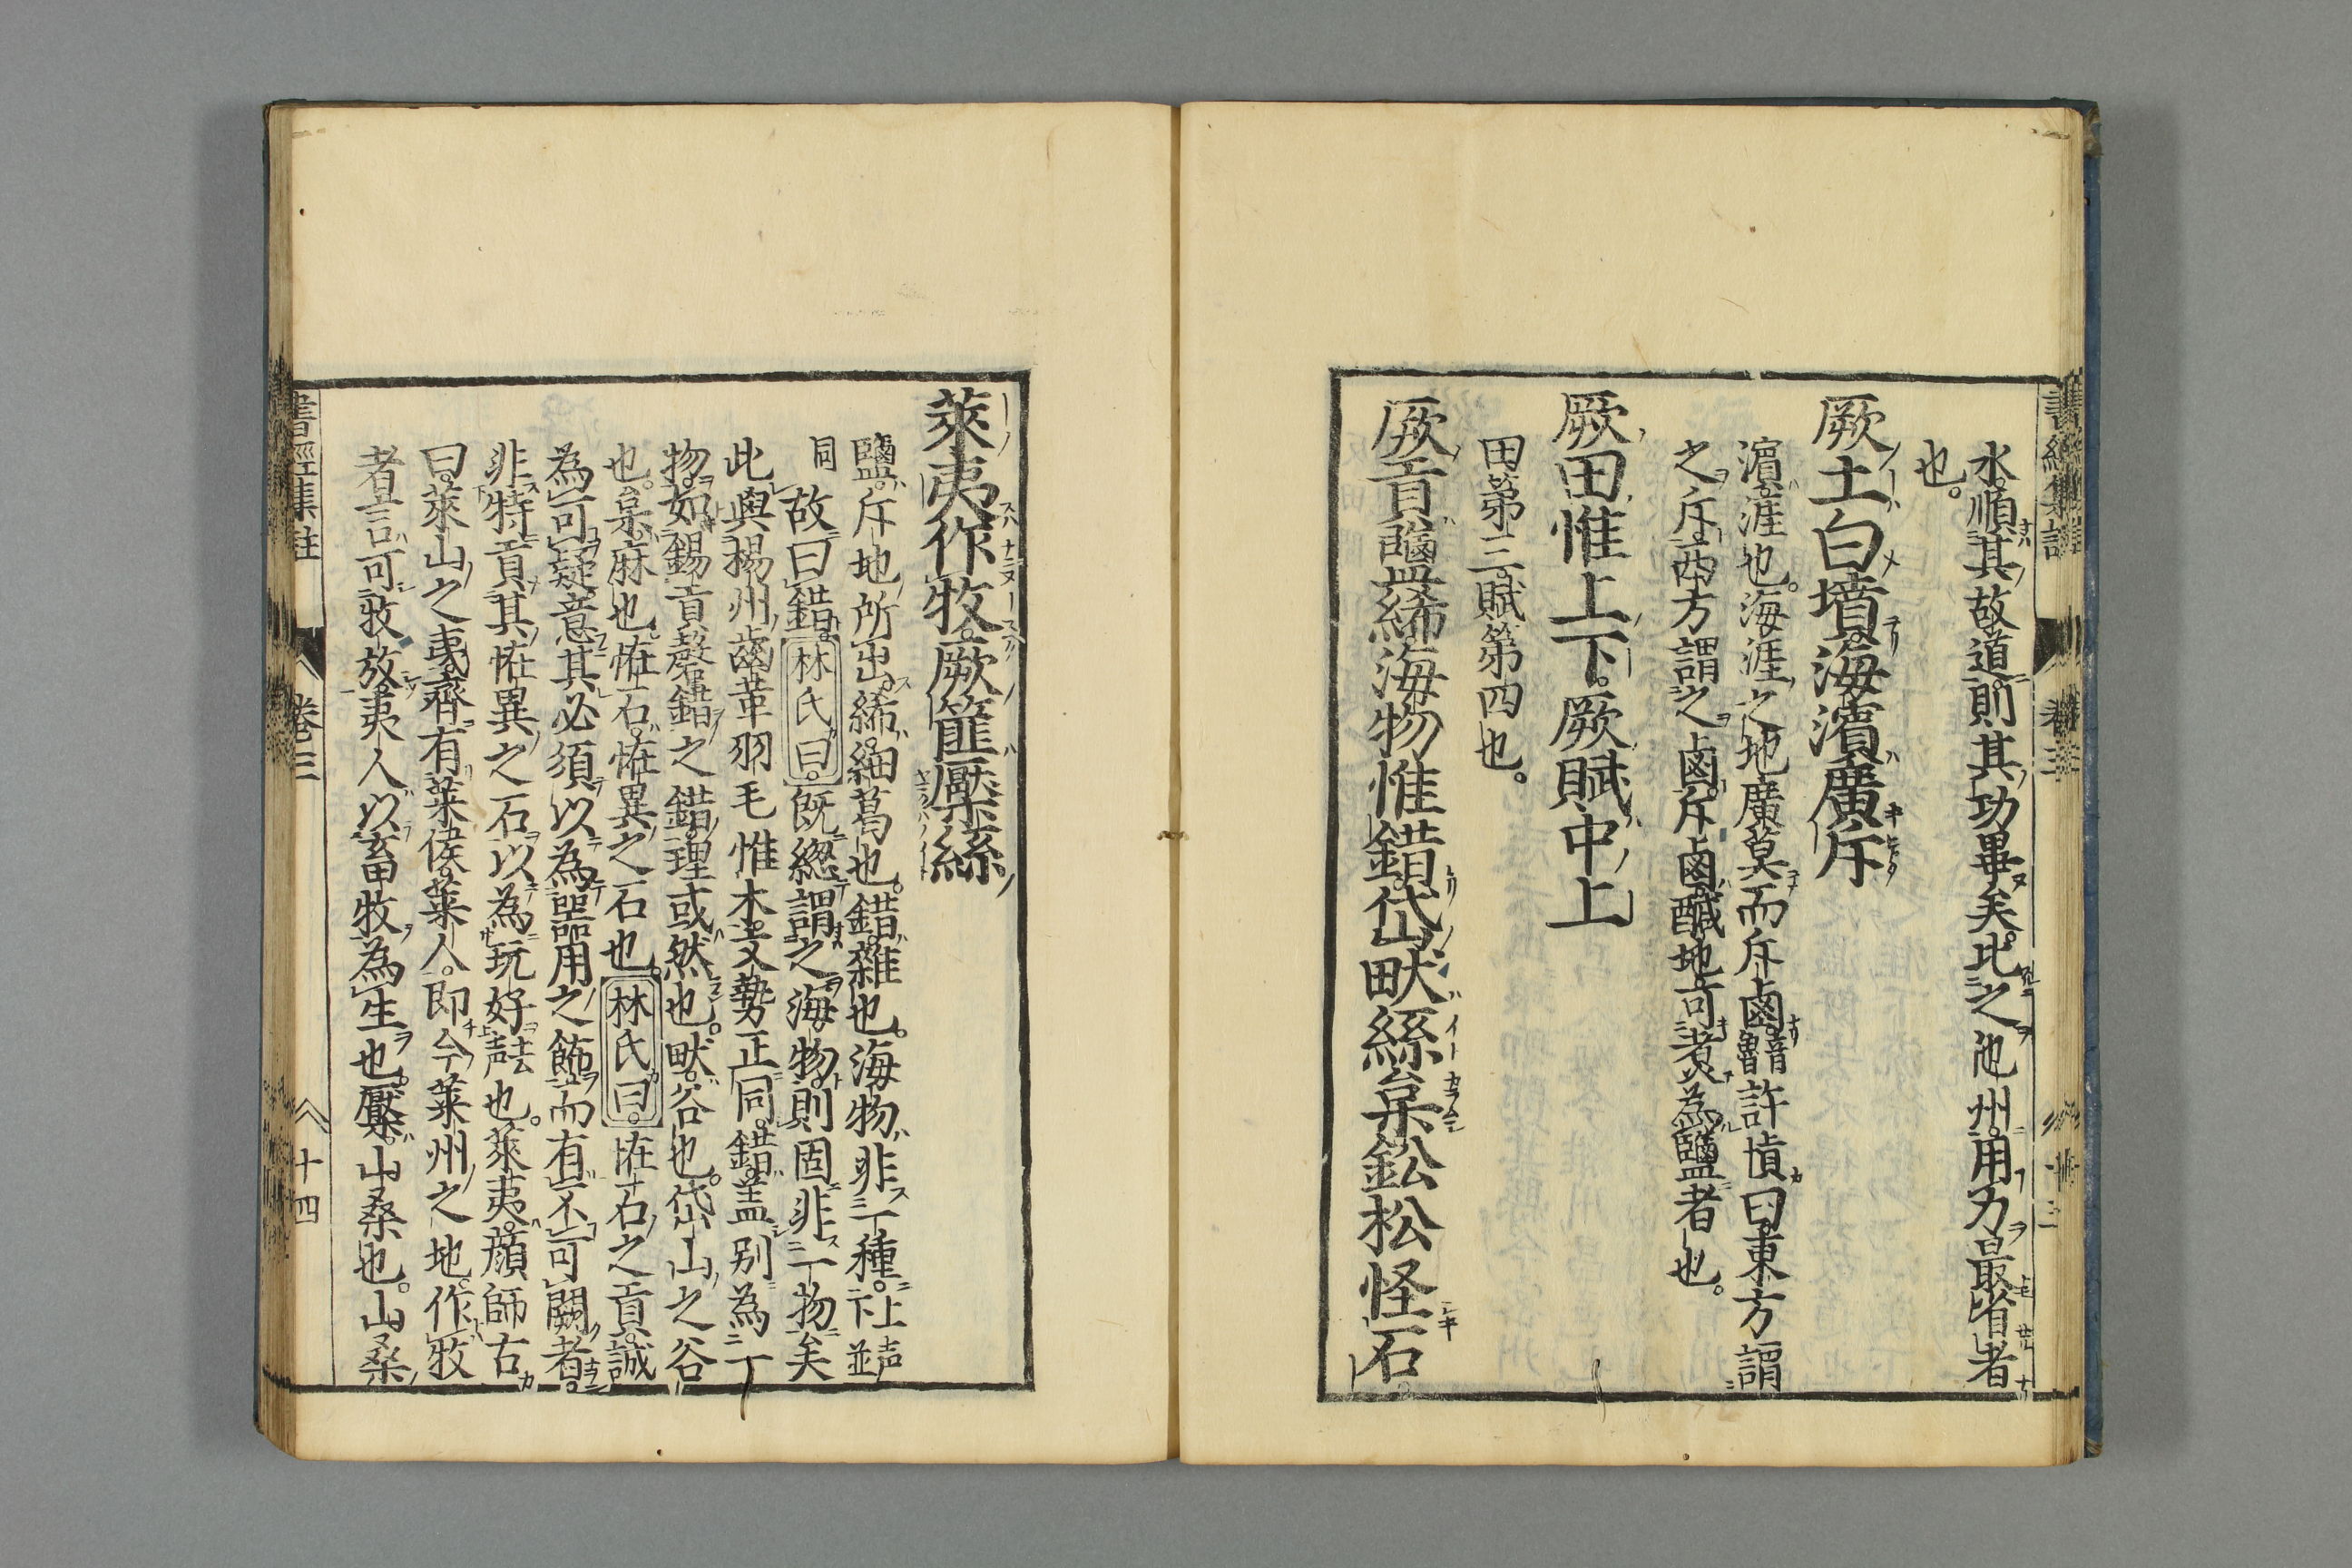 水順其故道則其功畢矣比之他州用力最省者
也。
厥土白墳海濱廣斥
濱涯也。海涯之地廣莫而斥鹵許愼曰東方謂
之斥西方謂之鹵斥鹵鹹地可煮為鹽者也。
厥田惟上下。厥賦中上
田第三賦第四也。
厥貢鹽絺海物惟錯岱畎絲枲鈆松怪石
萊夷作牧厥篚檿絲
鹽斥地所出絺細葛也。錯雜也。海物非一種。上声下並
同故曰錯林氏曰。既緫謂之海物則固非一物矣
此與揚州齒革羽毛惟木文勢正同錯盖別為一
物如錫貢磬錯之錯理或然也。畎谷也。岱山之谷
也。枲麻也恠石恠異之石也。林氏曰。恠石之貢誠
為可疑意其必須以為噐用之飾而有不可闕者。
非特貢其恠異之石以為玩好去声也。萊夷顔師古
曰萊山之夷齊有萊侯萊人。即今萊州之地作牧
者言可牧放夷人以畜牧為生也。檿山桑也。山桑
書經集註 卷三 十四